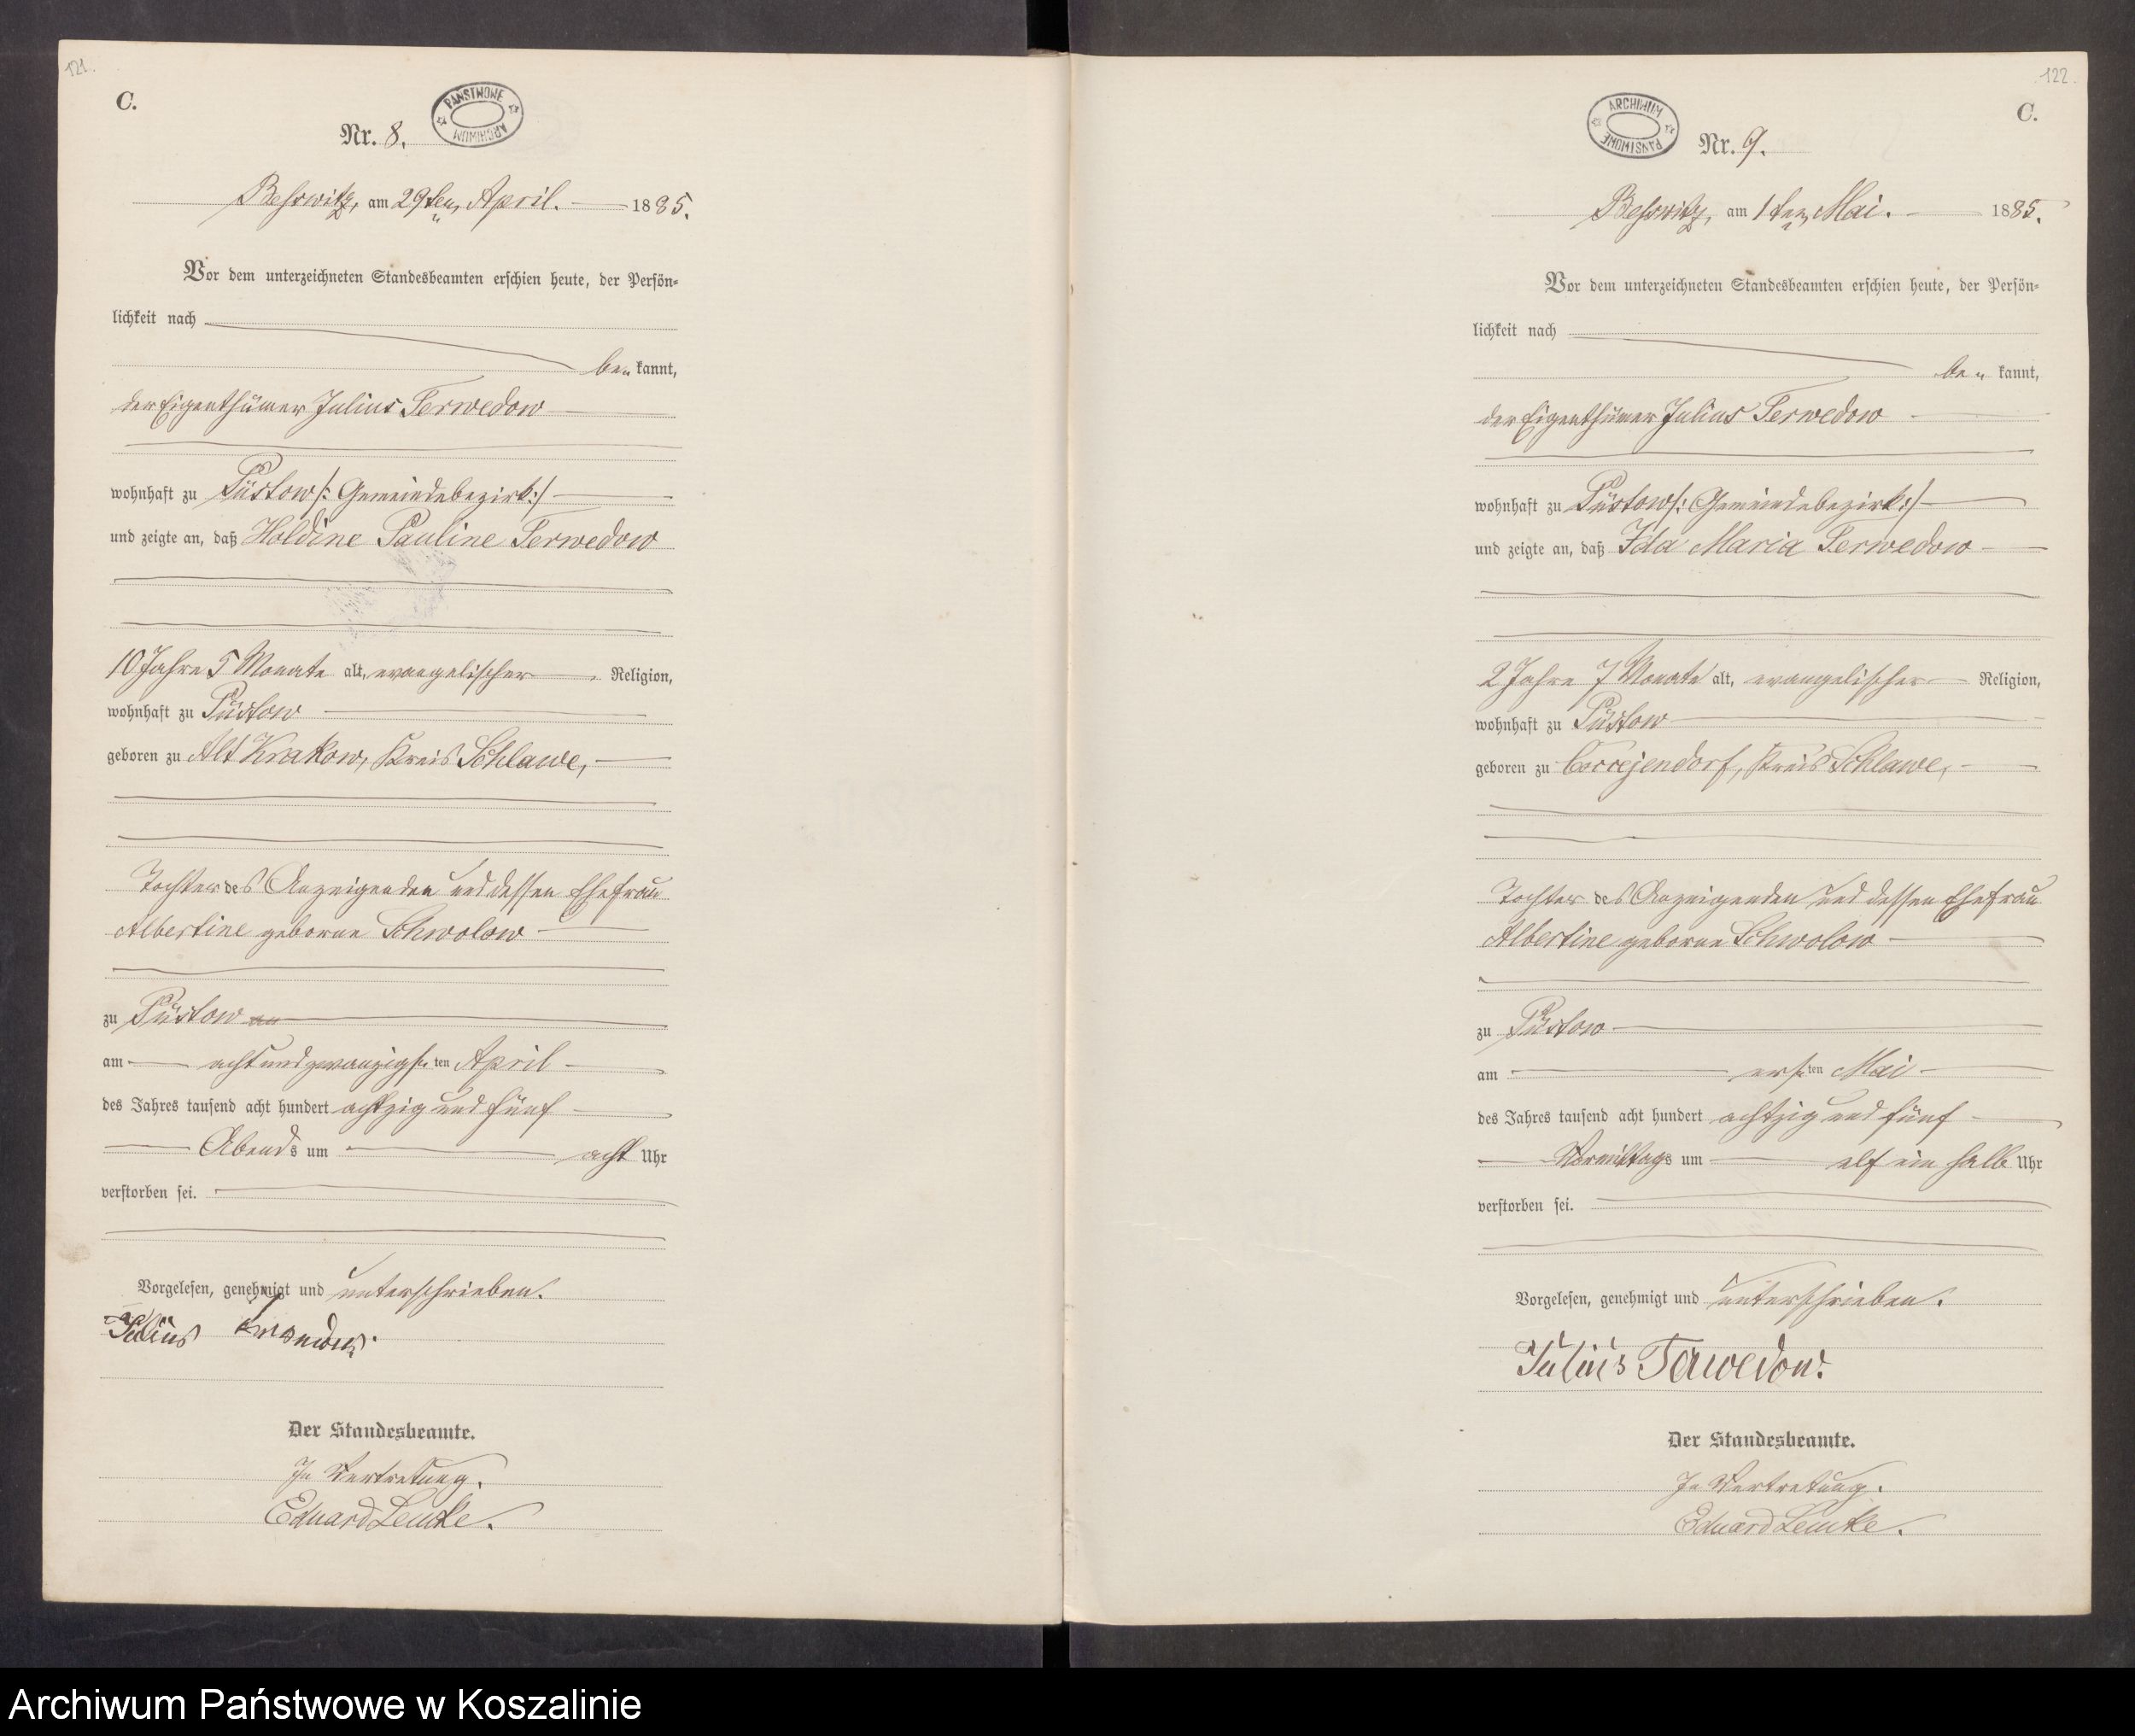 121.
C.
PAŃSTWOWE ARCHIWUM
Nr. 8.
Beßwitz, am 29ten April. 1885.
Vor dem unterzeichneten Standesbeamten erschien heute, der Persön-
lichkeit nach
be kannt,
der Eigenthümer Julius Terwedow
wohnhaft zu Püstow /: Gemeindebezirk :/
und zeigte an, daß Holdine Pauline Terwedow
10 Jahre 5 Monate alt, evangelischer Religion,
wohnhaft zu Püstow
geboren zu Alt Krakow, Kreis Schlawe,
Tochter des Anzeigenden und dessen Ehefrau
Albertine geborne Schwolow
zu Püstow
am achtundzwanzigsten April
des Jahres tausend acht hundert achtzig und fünf
Abends um acht Uhr
verstorben sei.
Vorgelesen, genehmigt und unterschrieben.
Julius
Der Standesbeamte.
In Vertretung.
Eduard Lemke.
122.
C.
ARCHIWUM PAŃSTWOWE
Nr. 9.
Beßwitz, am 1ten Mai. 1885.
Vor dem unterzeichneten Standesbeamten erschien heute, der Persön-
lichkeit nach
be kannt,
der Eigenthümer Julius Terwedow
wohnhaft zu Püstow /: Gemeindebezirk :/
und zeigte an, daß Ida Maria Terwedow
2 Jahre 7 Monate alt, evangelischer Religion,
wohnhaft zu Püstow
geboren zu Kreis Schlawe,
Tochter des Anzeigenden und dessen Ehefrau
Albertine geborne Schwolow
zu Püstow
am ersten Mai
des Jahres tausend acht hundert achtzig und fünf
Vormittags um elf ein halb Uhr
verstorben sei.
Vorgelesen, genehmigt und unterschrieben.
Julius Terwedow.
Der Standesbeamte.
In Vertretung.
Eduard Lemke.
Archiwum Państwowe w Koszalinie